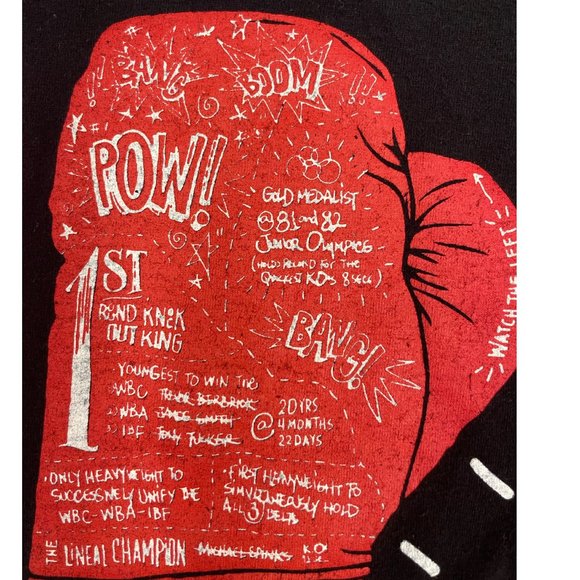 BANG
BOOM
!!
POW!!
GOLD MEDALIST
@ 81 and 82
JUNIOR OLYMPICS
(HOLDS RECORD FOR THE
QUICKEST KO's 8 SECS)
1ST
ROUND KNOCK
OUT KING
BANG!
WATCH THE LEFT
YOUNGEST TO WIN THE
WBC TREVOR BERBRICK
WBA JAMES SMITH
IBF TONY TUCKER
@ 20 YRS
4 MONTHS
22 DAYS
• ONLY HEAVYWEIGHT TO
SUCCESSIVELY UNIFY THE
WBC-WBA-IBF
• FIRST HEAVYWEIGHT TO
SIMULTANEOUSLY HOLD
ALL 3 BELTS
THE LINEAL CHAMPION MICHAEL SPINKS KO